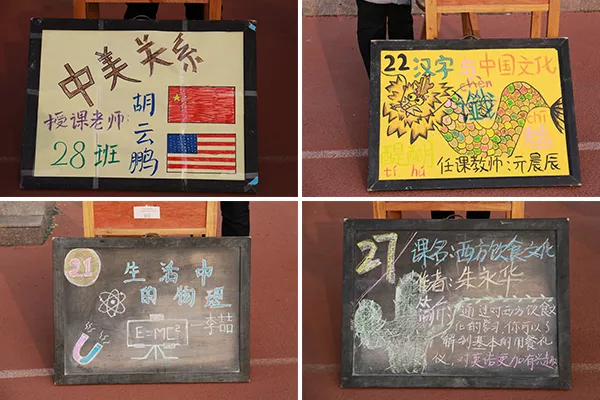 中美关系
授课老师:
胡云鹏
28班
22 汉字与中国文化
chèn
chī
醍醐
tí hú
任课教师:亓晨辰
21
生活中
的物理
—李喆
E=MC²
27
课名:西方饮食文化
作者:朱永华
简介:通过对西方饮食文
化的学习,你可以了
解到基本的用餐礼
仪,对英语更加有兴趣